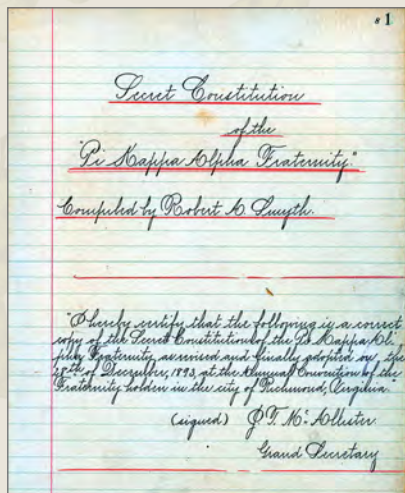 s 1
Secret Constitution
of the
"Pi Kappa Alpha Fraternity."
Compiled by Robert A. Smyth.
"I hereby certify that the following is a correct
copy of the Secret Constitution of the Pi Kappa Al-
pha Fraternity, as revised and finally adopted on the
28th of December, 1893, at the Annual Convention of the
Fraternity holden in the city of Richmond, Virginia."
(signed) J. T. McAllister.
Grand Secretary